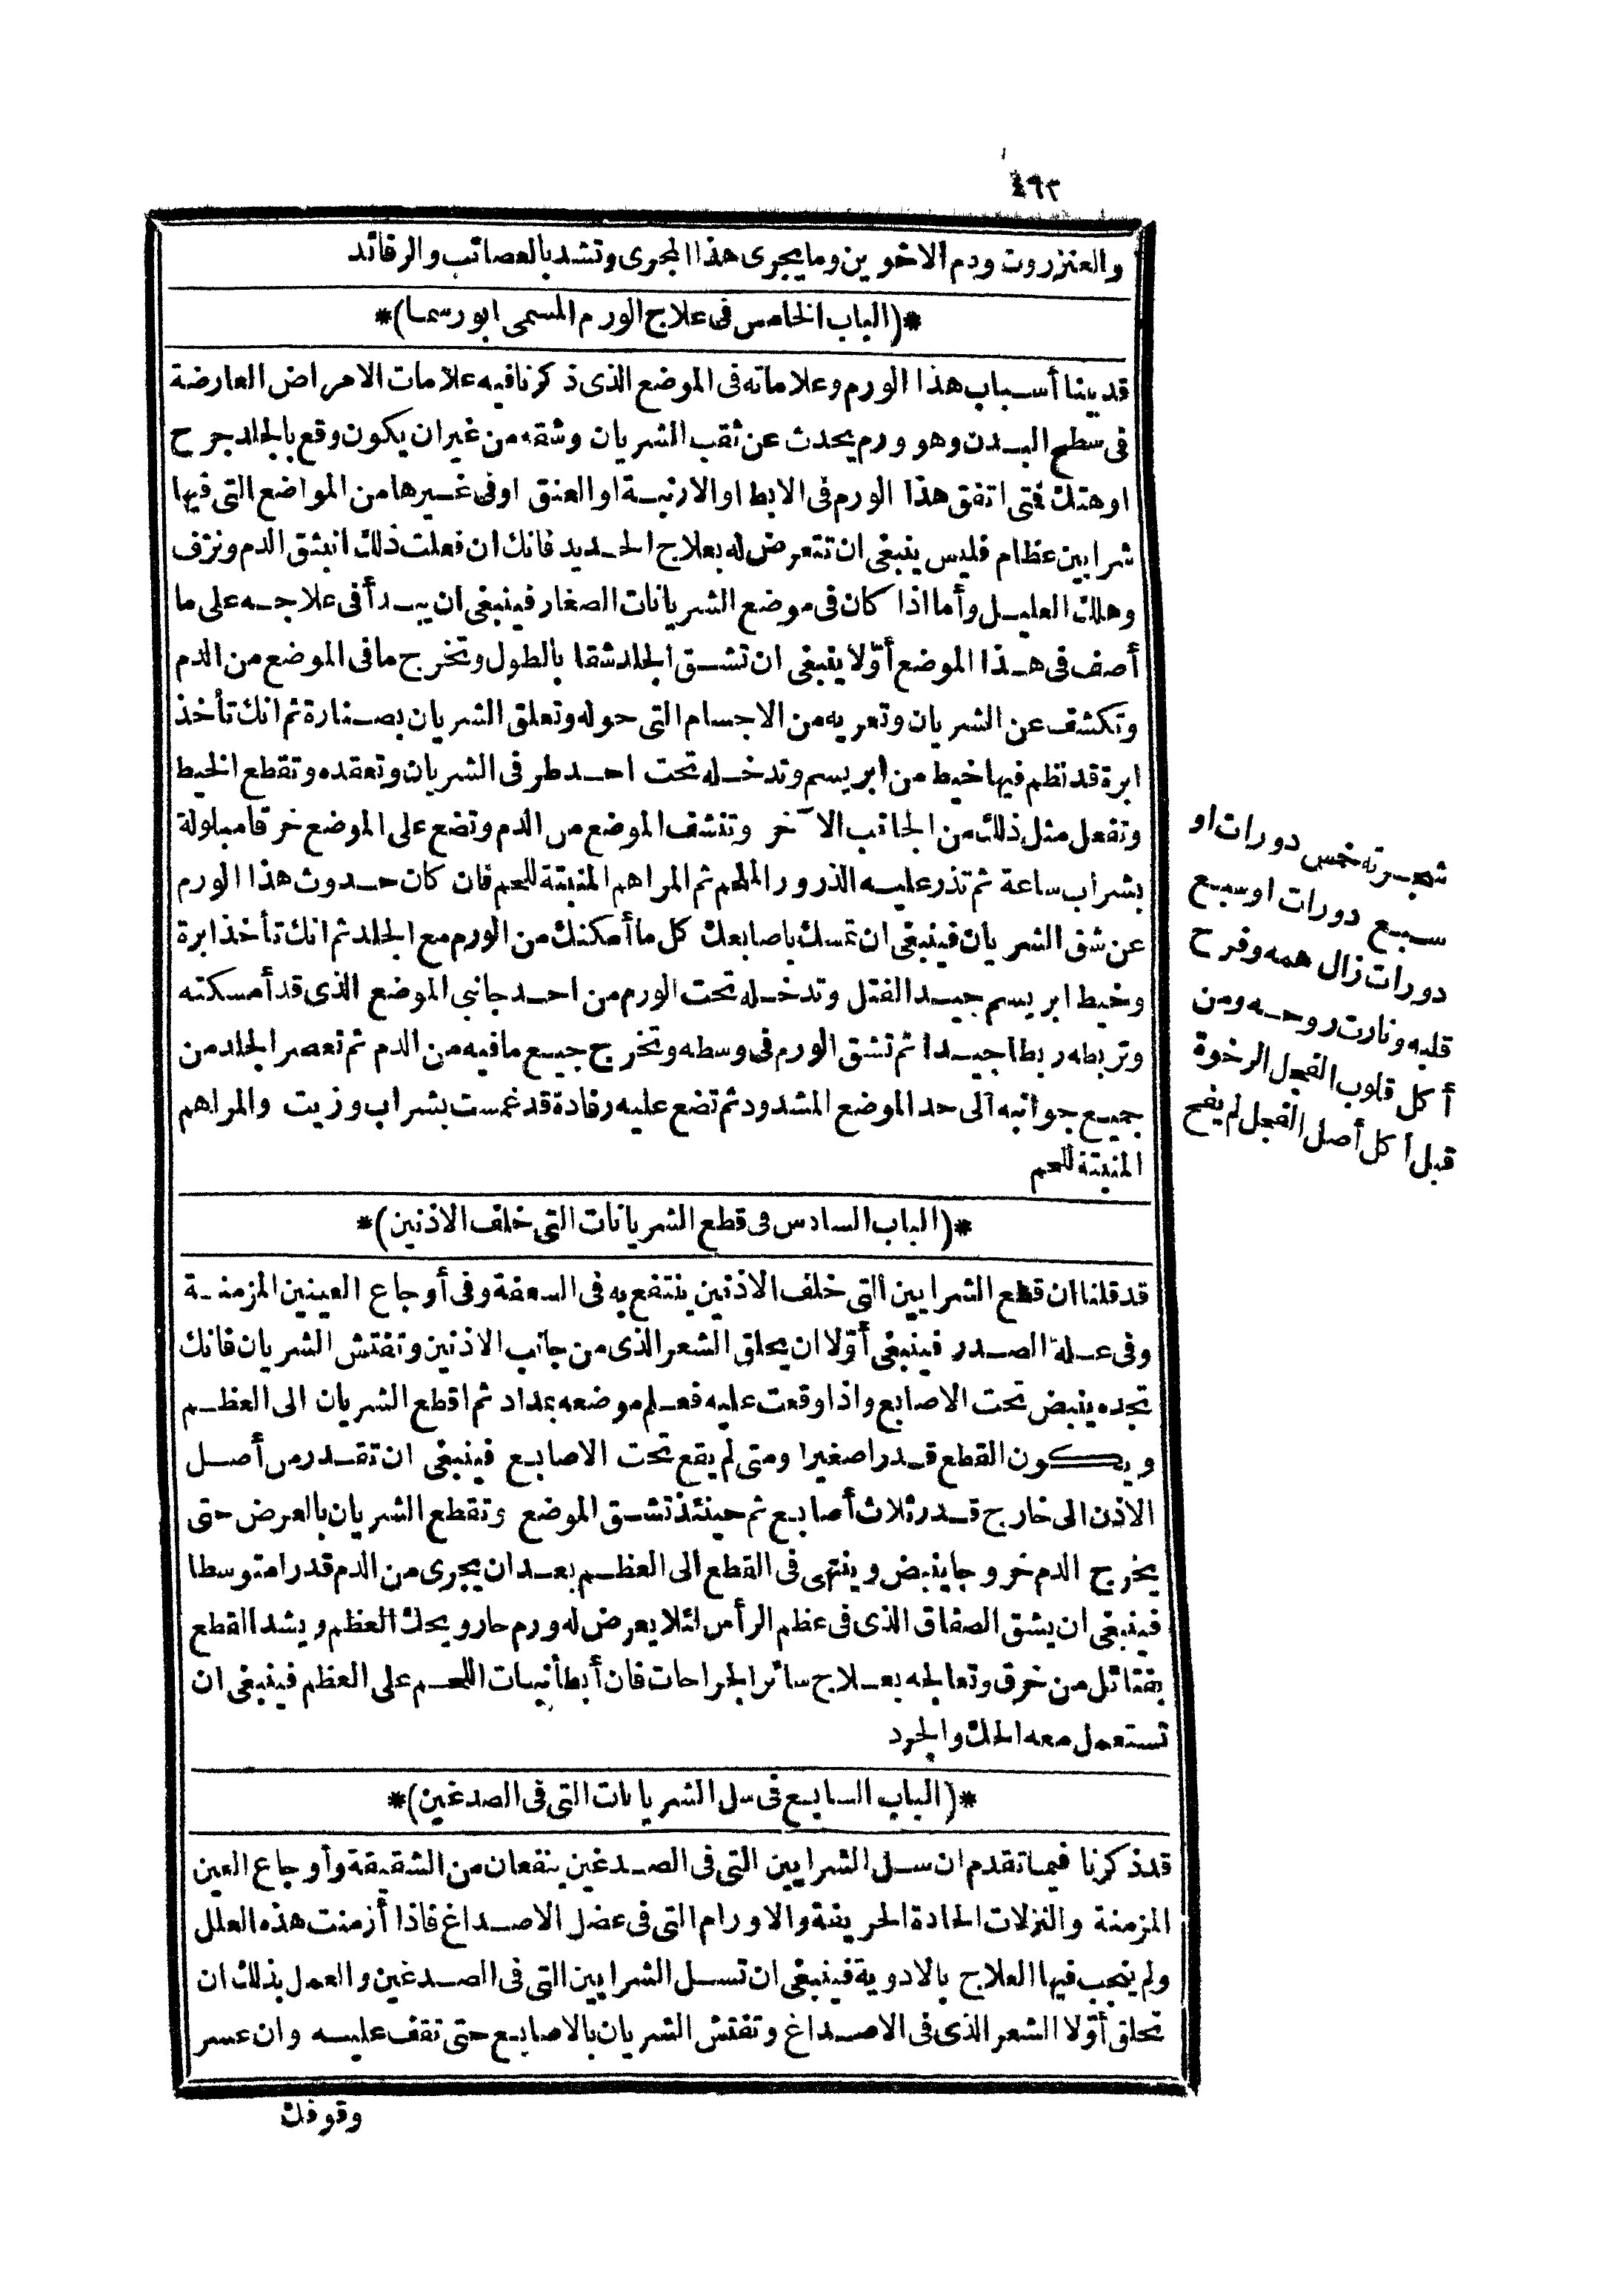 ٤٩٣
والعنزروت ودم الاخوين وما يجرى هذا المجرى وتشد بالعصائب والرفائد
*(الباب الخامس فى علاج الورم المسمى ابورسما)*
قد بينا أسباب هذا الورم وعلاماته فى الموضع الذى ذكرنا فيه علامات الامراض العارضة
فى سطح البدن وهو ورم يحدث عن ثقب الشريان وشقه من غير ان يكون وقع بالجلد جرح
اوهتك فمتى اتفق هذا الورم فى الابط او الارنبة او العنق اوفى غيرها من المواضع التى فيها
شرايين عظام فليس ينبغى ان تتعرض له بعلاج الحديد فانك ان فعلت ذلك انبثق الدم ونزف
وهلك العليل وأما اذا كان فى موضع الشريانات الصغار فينبغى ان يبدأ فى علاجه على ما
أصف فى هذا الموضع أوّلا ينبغى ان تشق الجلد شقا بالطول وتخرج ما فى الموضع من الدم
وتكشف عن الشريان وتعريه من الاجسام التى حوله وتعلق الشريان بصنارة ثم انك تأخذ
ابرة قد نظم فيها خيط من ابريسم وتدخله تحت احد طرفى الشريان وتعقده وتقطع الخيط
وتفعل مثل ذلك من الجانب الآخر وتنشف الموضع من الدم وتضع على الموضع خرقا مبلولة
بشراب ساعة ثم تذر عليه الذرور الملحم ثم المراهم المنبتة للحم فان كان حدوث هذا الورم
عن شق الشريان فينبغى ان تمسك باصابعك كل ما أمكنك من الورم مع الجلد ثم انك تأخذ ابرة
وخيط ابريسم جيد الفتل وتدخله تحت الورم من احد جانبى الموضع الذى قد أمسكته
وتربطه ربطا جيدا ثم تشق الورم فى وسطه وتخرج جميع ما فيه من الدم ثم تعصر الجلد من
جميع جوانبه الى حد الموضع المشدود ثم تضع عليه رفادة قد غمست بشراب وزيت والمراهم
المنبتة للحم
*(الباب السادس فى قطع الشريانات التى خلف الاذنين)*
قد قلنا ان قطع الشرايين التى خلف الاذنين ينتفع به فى السعفة وفى أوجاع العينين المزمنة
وفى علة الصدر فينبغى أوّلا ان يحلق الشعر الذى من جانب الاذنين وتفتش الشريان فانك
تجده ينبض تحت الاصابع واذا وقعت عليه فعلم موضعه بمداد ثم اقطع الشريان الى العظم
ويكون القطع قدرا صغيرا ومتى لم يقع تحت الاصابع فينبغى ان تقدر من أصل
الاذن الى خارج قدر ثلاث أصابع ثم حينئذ تشق الموضع وتقطع الشريان بالعرض حتى
يخرج الدم خروجا ينبض وينتهى فى القطع الى العظم بعد ان يجرى من الدم قدرا متوسطا
فينبغى ان يشق الصفاق الذى فى عظم الرأس لئلا يعرض له ورم حار ويحك العظم ويشد القطع
بفتائل من خرق وتعالجه بعلاج سائر الجراحات فان أبطأ نبات اللحم على العظم فينبغى ان
تستعمل معه الحك والجرد
*(الباب السابع فى سل الشريانات التى فى الصدغين)*
قد ذكرنا فيما تقدم ان سل الشرايين التى فى الصدغين ينفعان من الشقيقة وأوجاع العين
المزمنة والنزلات الحادة الحريفة والاورام التى فى عضل الاصداغ فاذا أزمنت هذه العلل
ولم ينجب فيها العلاج بالادوية فينبغى ان تسل الشرايين التى فى الصدغين والعمل بذلك ان
تحلق أوّلا الشعر الذى فى الاصداغ وتفتش الشريان بالاصابع حتى تقف عليه وان عسر
وقوفك
شجرته خمس دورات او
سبع دورات اوسبع
دورات زال همه وفرح
قلبه ونارت روحه ومن
أكل قلوب الفجل الرخوة
قبل أكل أصل الفجل لم يفح